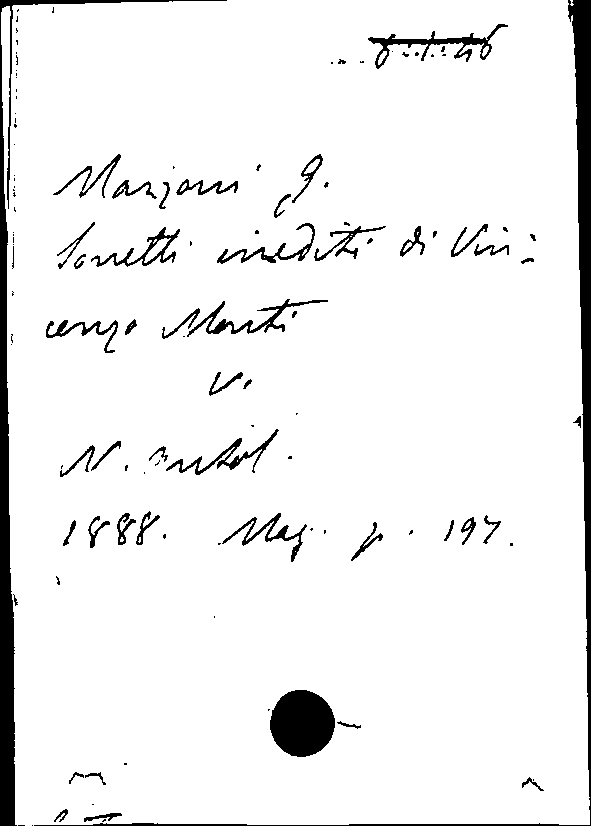 Manzoni G.
Sonetti inediti di Vin-
cenzo Monti
V.
N. Antol.
1888. Mag. p. 197.